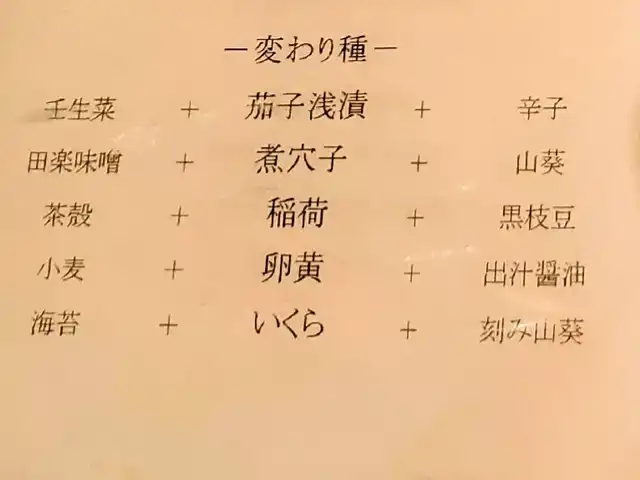 －変わり種－
壬生菜 ＋ 茄子浅漬 ＋ 辛子
田楽味噌 ＋ 煮穴子 ＋ 山葵
茶殻 ＋ 稲荷 ＋ 黒枝豆
小麦 ＋ 卵黄 ＋ 出汁醤油
海苔 ＋ いくら ＋ 刻み山葵